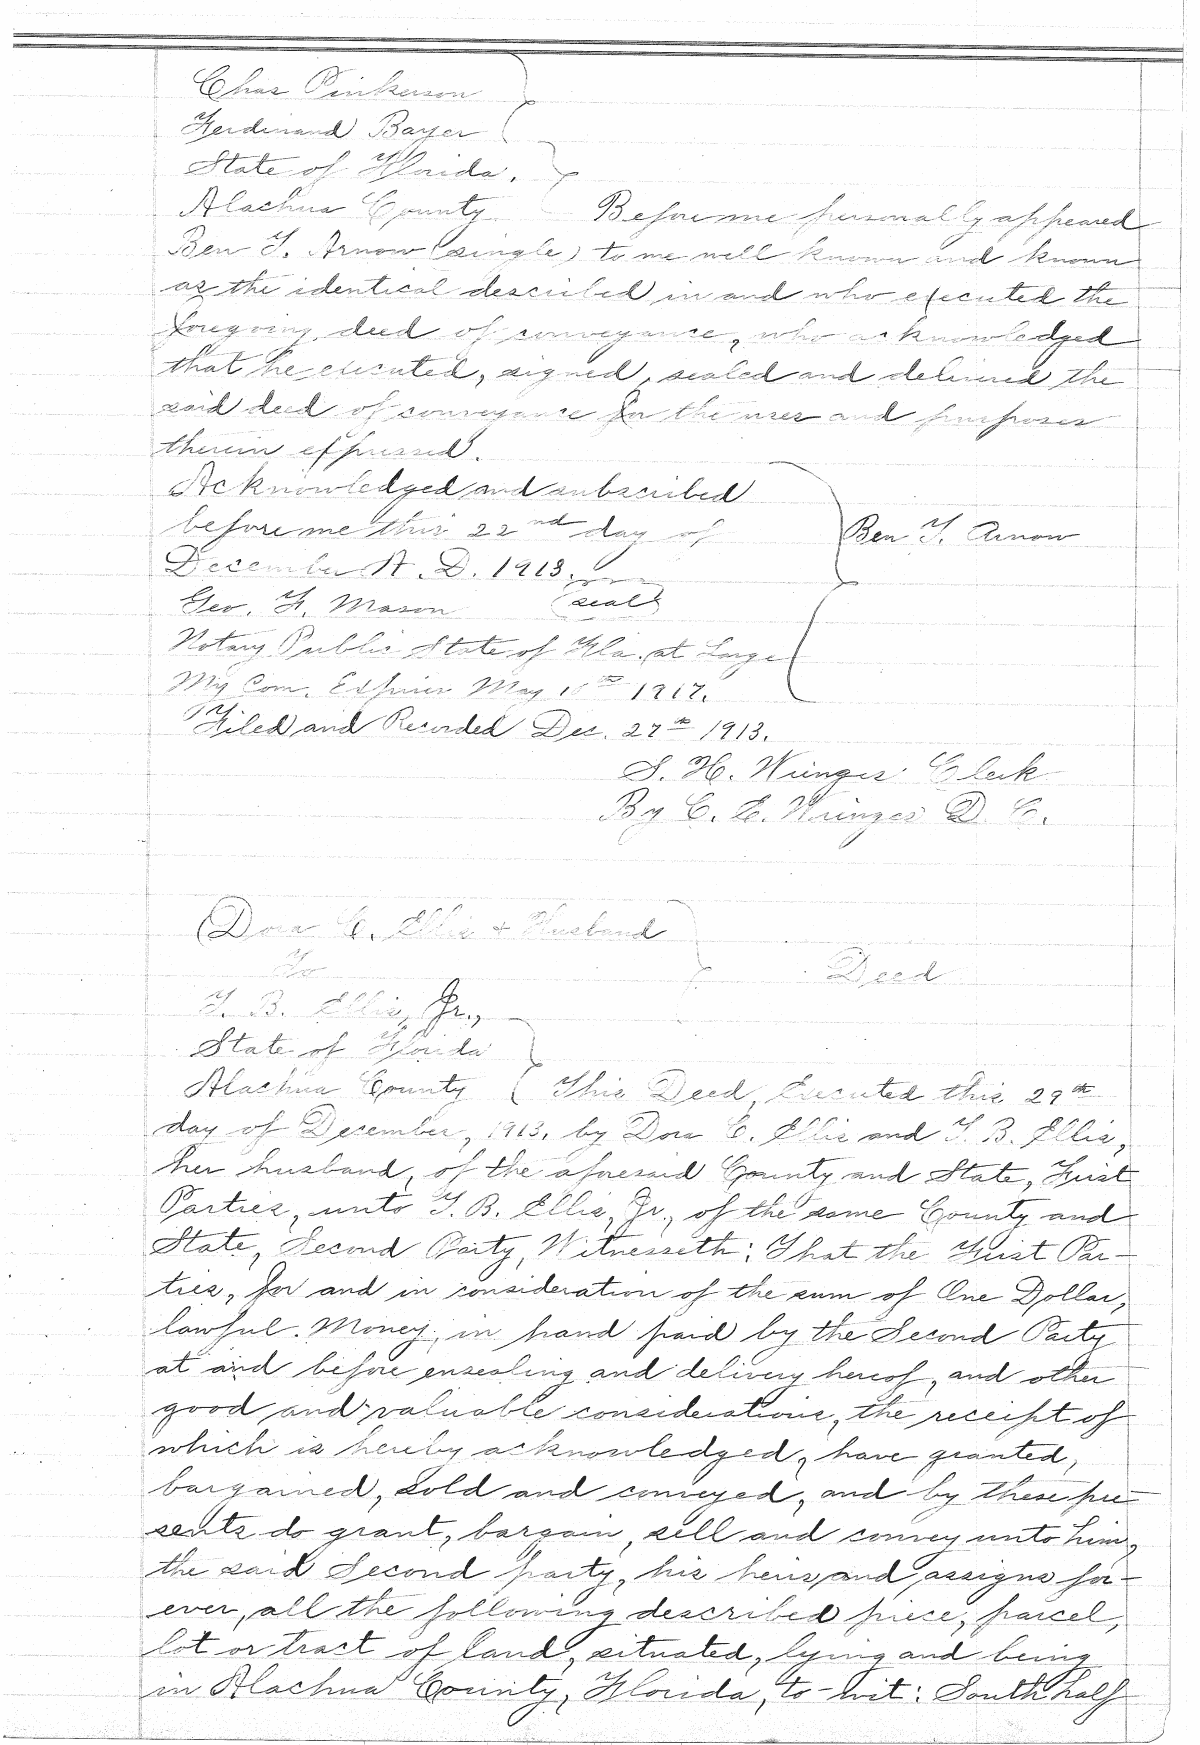 Chas Pinkerson
Ferdinand Bayer
State of Florida.
Alachua County Before me personally appeared
Ben T. Arnow (single) to me well known and known
as the identical described in and who executed the
foregoing deed of conveyance, who acknowledged
that he executed, signed, sealed and delivered the
said deed of conveyance for the uses and purposes
therein expressed.
Acknowledged and subscribed
before me this 22nd day of
December A. D. 1913. Ben T. Arnow
Geo. F. Mason (seal)
Notary Public State of Fla. at Large
My Com. Expires May 1917.
Filed and Recorded Dec. 27th 1913.
S. H. Wienges Clerk
By C. E. Wienges D. C.
Dora C. Ellis + Husband
To Deed
T. B. Ellis, Jr.,
State of Florida
Alachua County This Deed, Executed this 29th
day of December, 1913, by Dora C. Ellis and T. B. Ellis,
her husband, of the aforesaid County and State, First
Parties, unto T. B. Ellis, Jr., of the same County and
State, Second Party, Witnesseth: That the First Par-
ties, for and in consideration of the sum of One Dollar,
lawful Money, in hand paid by the Second Party
at and before ensealing and delivery hereof, and other
good and valuable considerations, the receipt of
which is hereby acknowledged, have granted,
bargained, sold and conveyed, and by these pre-
sents do grant, bargain, sell and convey unto him,
the said Second party, his heirs and assigns for-
ever, all the following described piece, parcel,
lot or tract of land, situated, lying and being
in Alachua County, Florida, to-wit: South half